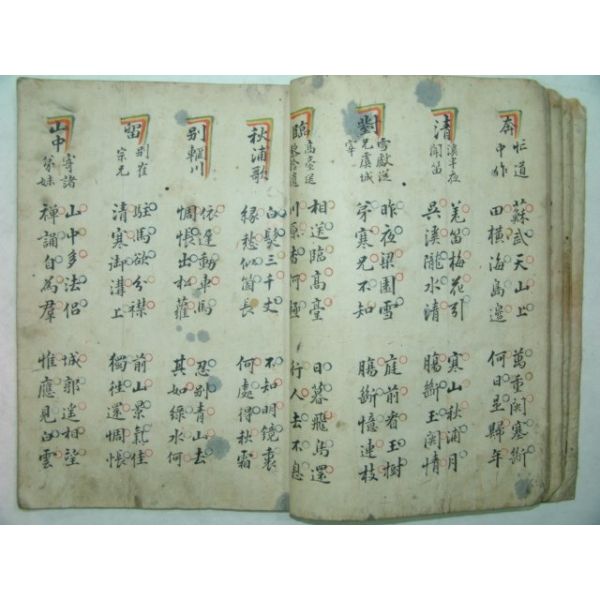 奔
忙道
中作
蘇武天山上
田橫海島邊
萬重關塞斷
何日是歸年
清
溪半夜
聞笛
羌笛梅花引
吳溪隴水清
寒山秋浦月
腸斷玉關情
對
雪獻從
兄虞城
宰
昨夜梁園雪
弟寒兄不知
庭前看玉樹
腸斷憶連枝
臨
高臺送
拾遺
相送臨高臺
川原杳何極
日暮飛鳥還
行人去不息
秋浦歌
白髮三千丈
緣愁似箇長
不知明鏡裏
何處得秋霜
別輞川
依遲動車馬
惆悵出松蘿
忍別青山去
其如綠水何
留
別崔
宗兄
駐馬欲分襟
清寒御溝上
前山景氣佳
獨往還惆悵
山中
寄諸
弟妹
山中多法侶
禪誦自為羣
城郭遙相望
惟應見白雲